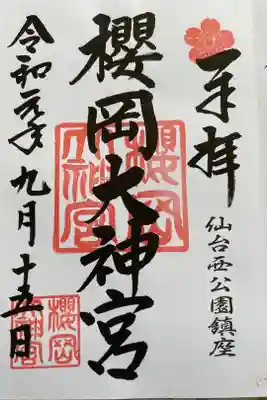 奉拝
仙台西公園鎮座
櫻岡大神宮
櫻岡大神宮
令和元年九月十五日
櫻岡大神宮